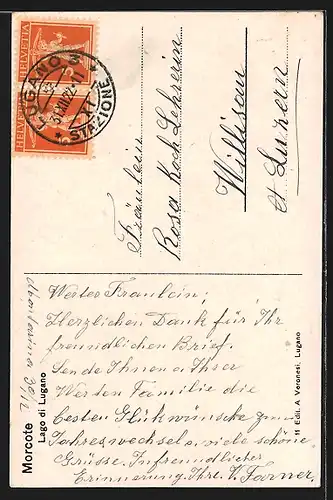 HELVETIA
HELVETIA
LUGANO 3
STAZIONE
Fräulein
Rosa Koch Lehrerin
Willisau
ct Luzern
Morcote
Lago di Lugano
30/12
11 Edit. A. Veronesi, Lugano
Werter Fräulein;
Herzlichen Dank für Ihr
freundlichen Brief.
Sende Ihnen & Ihrer
Werten Familie die
besten Glükwünsche zum
Jahreswechsel & viele schöne
Grüsse. In freundlicher
Erinnerung. Ihre. V. Farner.